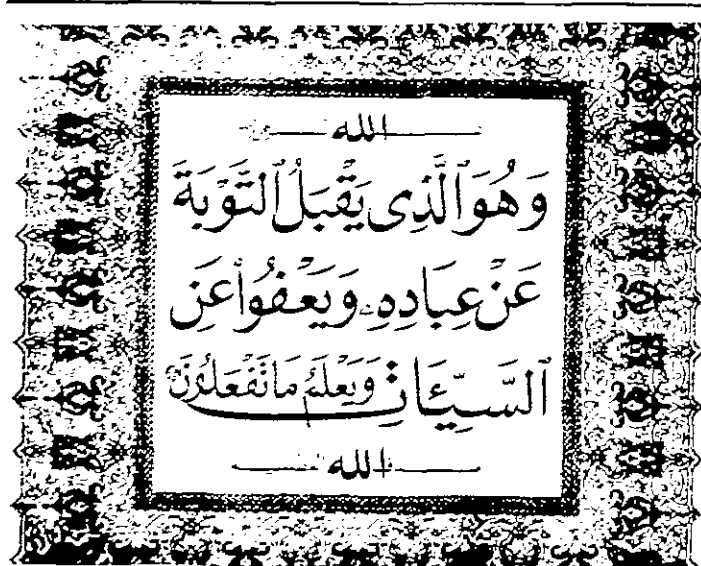 الله
وَهُوَ ٱلَّذِى يَقْبَلُ ٱلتَّوْبَةَ
عَنْ عِبَادِهِۦ وَيَعْفُوا۟ عَنِ
ٱلسَّيِّـَٔاتِ وَيَعْلَمُ مَا تَفْعَلُونَ
الله